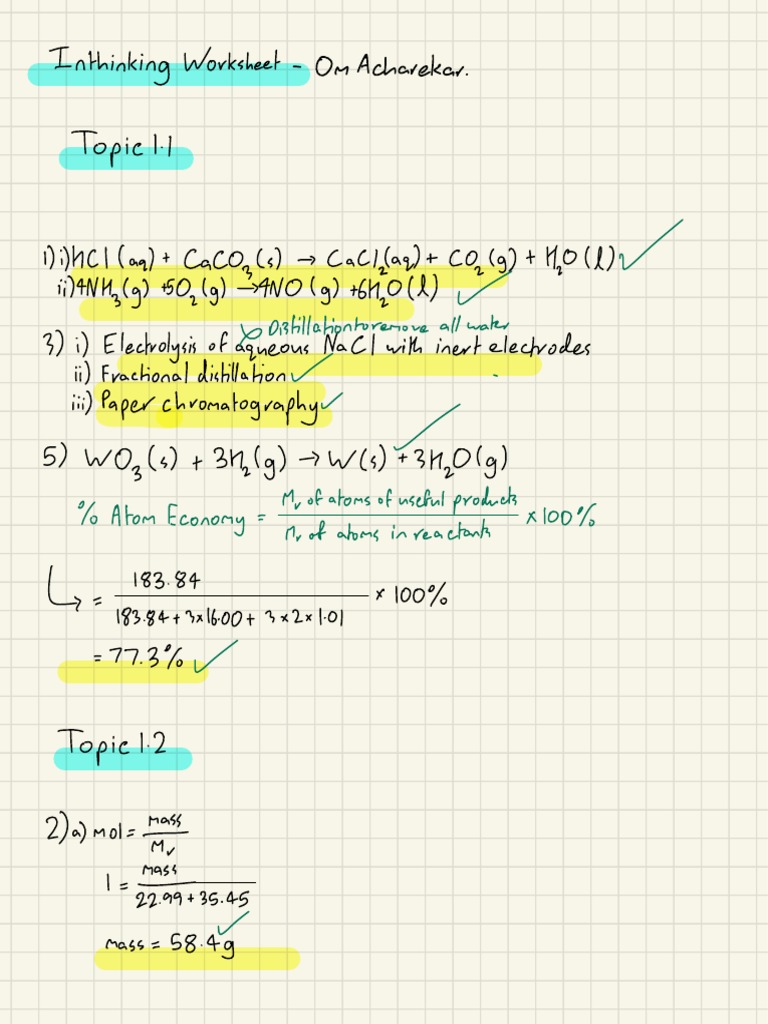 Inthinking Worksheet - Om Acharekar.
Topic 1.1
1) i) HCl (aq) + CaCO₃(s) → CaCl₂(aq) + CO₂(g) + H₂O(l)
ii) 4NH₃(g) + 5O₂(g) → 4NO(g) + 6H₂O(l)
Distillation to remove all water
3) i) Electrolysis of aqueous NaCl with inert electrodes
ii) Fractional distillation
iii) Paper chromatography
5) WO₃(s) + 3H₂(g) → W(s) + 3H₂O(g)
% Atom Economy = Mr of atoms of useful products / Mr of atoms in reactants × 100%
= 183.84 / 183.84 + 3×16.00 + 3×2×1.01 × 100%
= 77.3%
Topic 1.2
2) a) mol = mass / Mr
1 = mass / 22.99 + 35.45
mass = 58.4g